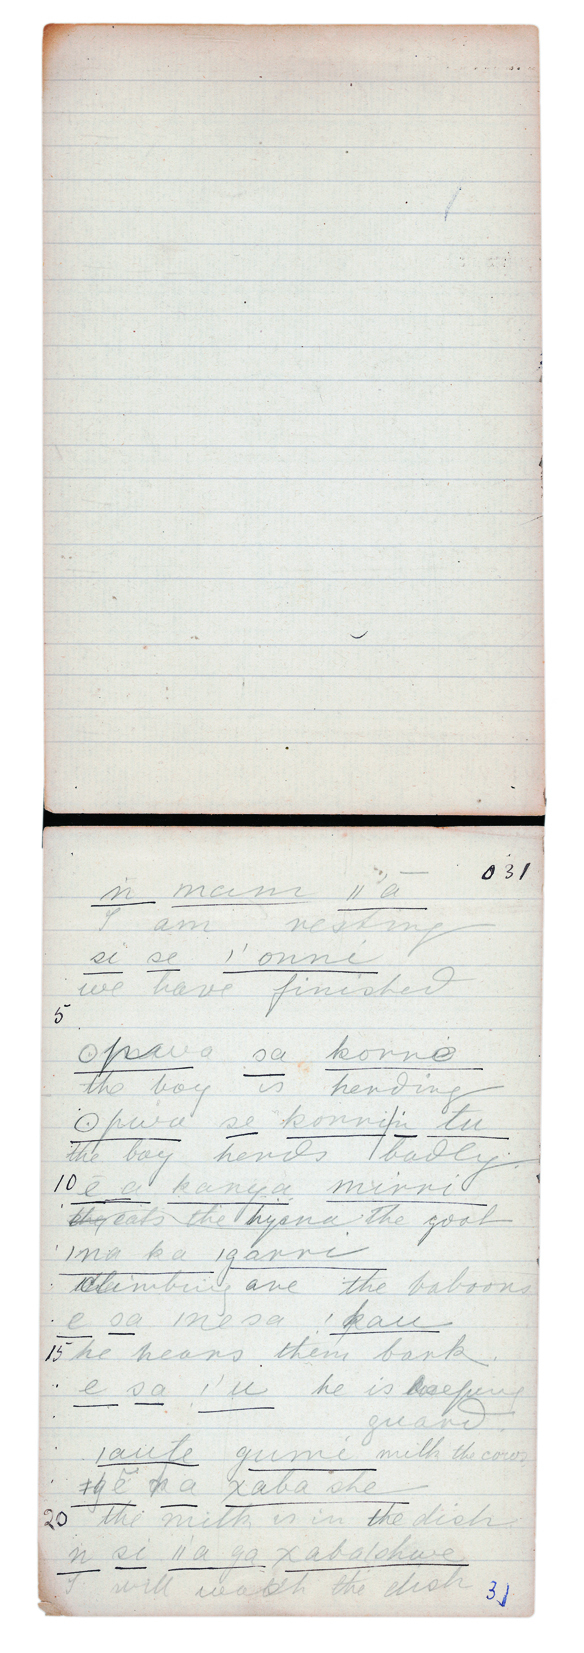 031
n mann ǁ'ā
I am resting
si se ǀ'onni
we have finished
5
ʘpwa sa konni
the boy is herding
ʘpwa se konnin tu
the boy herds badly
10 ē a kanya mirri
eats the hyena the goat
ǀna ka ǀgarri
climbing are the baboons
e sa ǀnesa ǃkau
15 he hears them bark
e sa ǃ'u he is keeping
guard
ǀaute gumi milk the cows
ǂgē ka xaba she
20 the milk is in the dish
n si ǁ'a ga xabaǀchwe
I will wash the dish
31